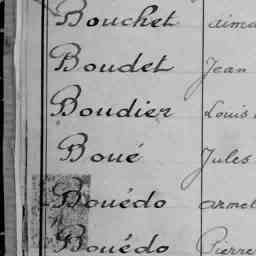 Bouchet aimé
Boudet Jean
Boudier Louis
Boué Jules
Bouédo armel
Bouédo Pierre